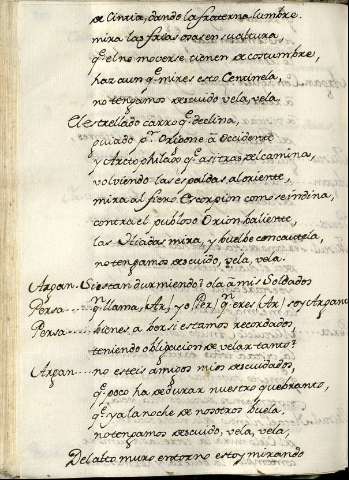 de Cintia, dando la fraterna lumbre.
mira las frias osas en su altura
q.e el no moverse tienen de costumbre,
haz aun q.e mires esto. Centinela,
no tengamos descuido vela, vela.
El estrellado carro q.e declina,
guiado p.r à Occidente
y Arctophilado q.e as tras del camina,
volviendo las espaldas al oriente,
mira al fiero Escorpion como se indina,
contra el Orion baliente,
las Hiadas mira, y buelbe con cautela,
no tengamos descuido, vela, vela.
Argan. Si estan durmiendo? ola à mis Soldados
Persa.... q.n llama, Ar/ yo Per/ q.n eres Ar/ soy Argano
Persa.... bienes a ber si estamos recordados
teniendo obligacion de velar tanto?
Argan.... no esteis amigos mios descuidados,
q.e poco ha de durar nuestro quebranto,
q.e ya la noche de nosotros buela,
no tengamos descuido, vela, vela,
Del alto muro entorno estoy mirando